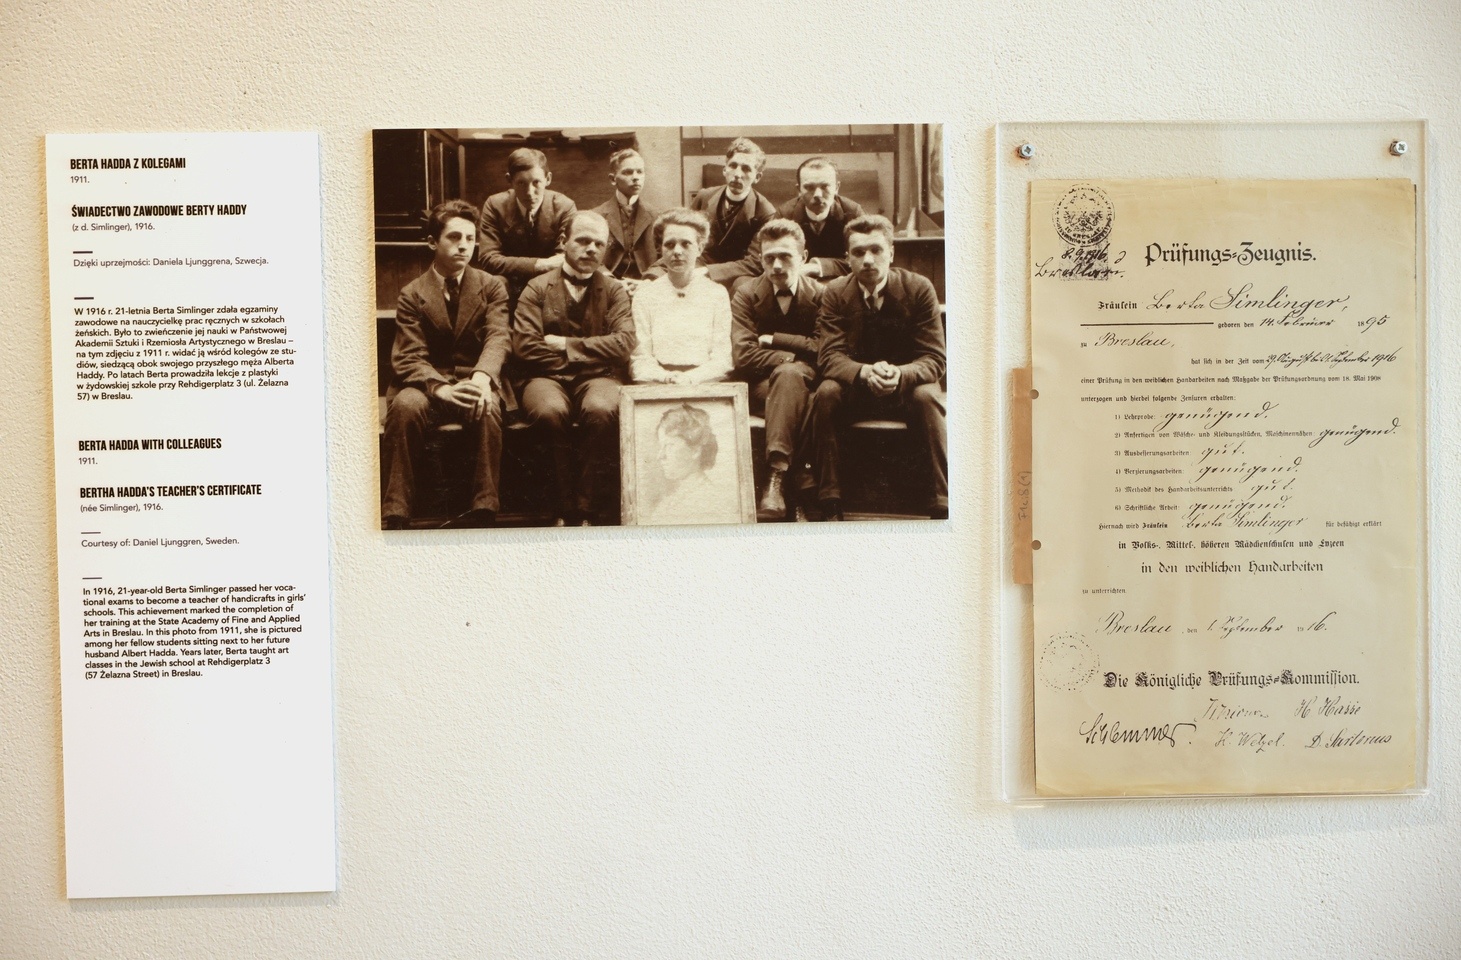 BERTA HADDA Z KOLEGAMI
1911.
ŚWIADECTWO ZAWODOWE BERTY HADDY
(z d. Simlinger), 1916.
Dzięki uprzejmości: Daniela Ljunggrena, Szwecja.
W 1916 r. 21-letnia Berta Simlinger zdała egzaminy
zawodowe na nauczycielkę prac ręcznych w szkołach
żeńskich. Było to zwieńczenie jej nauki w Państwowej
Akademii Sztuki i Rzemiosła Artystycznego w Breslau –
na tym zdjęciu z 1911 r. widać ją wśród kolegów ze stu-
diów, siedzącą obok swojego przyszłego męża Alberta
Haddy. Po latach Berta prowadziła lekcje z plastyki
w żydowskiej szkole przy Rehdigerplatz 3 (ul. Żelazna
57) w Breslau.
BERTA HADDA WITH COLLEAGUES
1911.
BERTHA HADDA'S TEACHER'S CERTIFICATE
(née Simlinger), 1916.
Courtesy of: Daniel Ljunggren, Sweden.
In 1916, 21-year-old Berta Simlinger passed her voca-
tional exams to become a teacher of handicrafts in girls'
schools. This achievement marked the completion of
her training at the State Academy of Fine and Applied
Arts in Breslau. In this photo from 1911, she is pictured
among her fellow students sitting next to her future
husband Albert Hadda. Years later, Berta taught art
classes in the Jewish school at Rehdigerplatz 3
(57 Żelazna Street) in Breslau.
Prüfungs-Zeugnis.
Fräulein Berta Simlinger,
geboren den 14. Februar 1895
zu Breslau,
hat sich in der Zeit vom 29. August bis 1. September 1916
einer Prüfung in den weiblichen Handarbeiten nach Maßgabe der Prüfungsordnung vom 18. Mai 1908
unterzogen und hierbei folgende Zensuren erhalten:
1) Lehrprobe: genügend.
2) Anfertigen von Wäsche- und Kleidungsstücken, Maschinennähen: genügend.
3) Ausbesserungsarbeiten: gut.
4) Verzierungsarbeiten: genügend.
5) Methodik des Handarbeitsunterrichts: gut.
6) Schriftliche Arbeit: genügend.
Hiernach wird Fräulein Berta Simlinger für befähigt erklärt
in Volks-, Mittel-, höheren Mädchenschulen und Lyzeen
in den weiblichen Handarbeiten
zu unterrichten.
Breslau, den 1. September 1916.
Die Königliche Prüfungs-Kommission.
H Hasse
Schlemmer. K. Wetzel. D. Sartorius